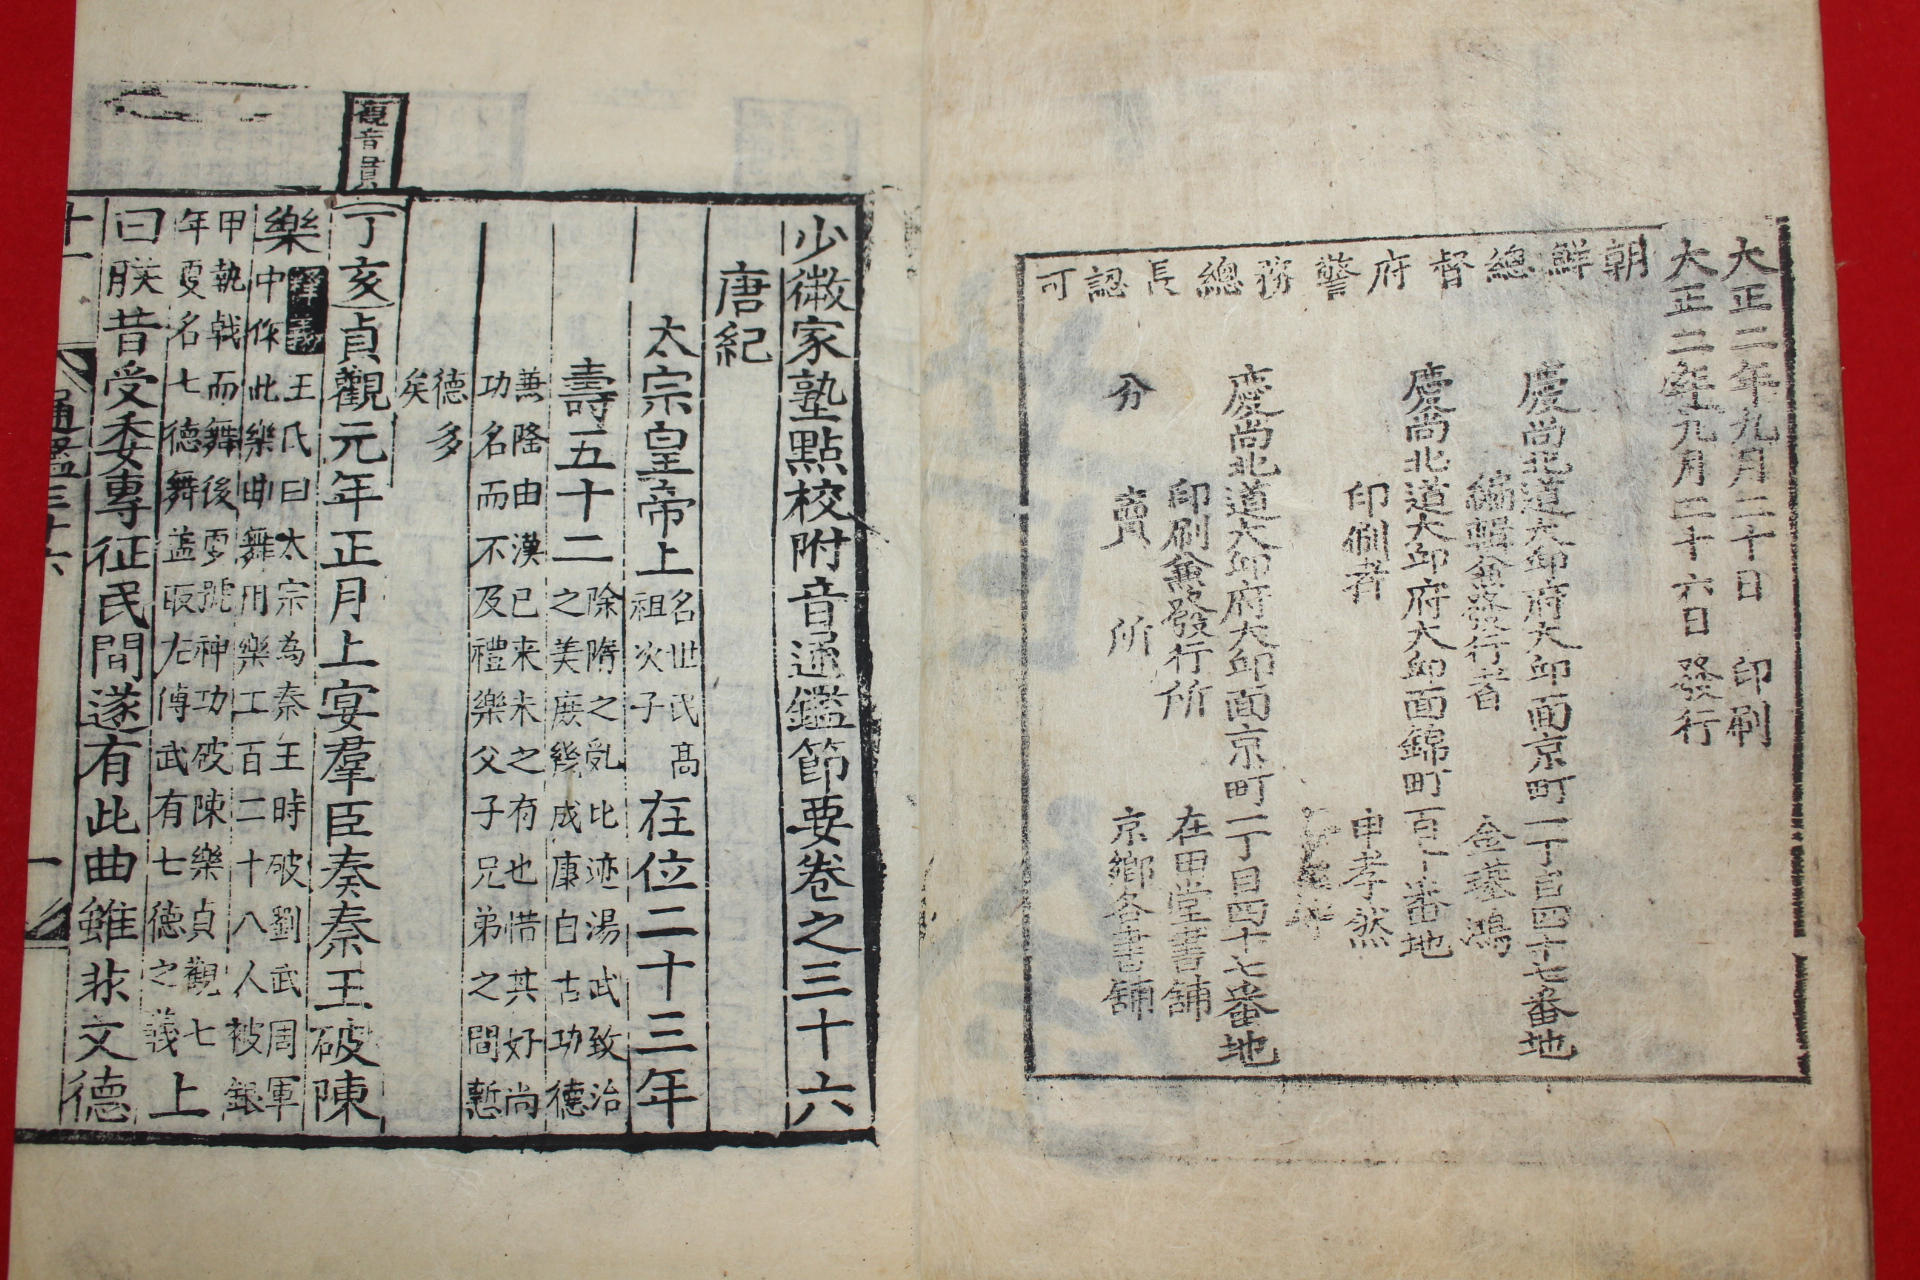 大正二年九月二十日 印刷
大正二年九月二十六日 發行
朝鮮總督府警務總長認可
慶尚北道大邱府大邱面京町一丁目四十七番地
編輯兼發行者 金璂鴻
慶尚北道大邱府大邱面錦町百 番地
印刷者 申孝然
慶尚北道大邱府大邱面京町一丁目四十七番地
印刷兼發行所 在田堂書舖
分賣所 京鄉各書舖
少微家塾點校附音通鑑節要卷之三十六
唐紀
太宗皇帝上 名世民高祖次子 在位二十三年
壽五十二 除隋之亂比迹湯武致治之美庶幾成康自古功德
兼隆由漢已来未之有也惜其好尚功名而不及禮樂父子兄弟之間慙
德多矣
觀音貫
丁亥 貞觀元年正月上宴羣臣奏秦王破陳
樂 釋義 王氏曰太宗為秦王時破劉武周軍中作此樂曲舞用樂工百二十八人被銀
甲執戟而舞後更號神功破陳樂貞觀七年更名七德舞盖取左傳武有七德之義 上
曰朕昔受委專征民間遂有此曲雖非文德
通鑑三十六 一